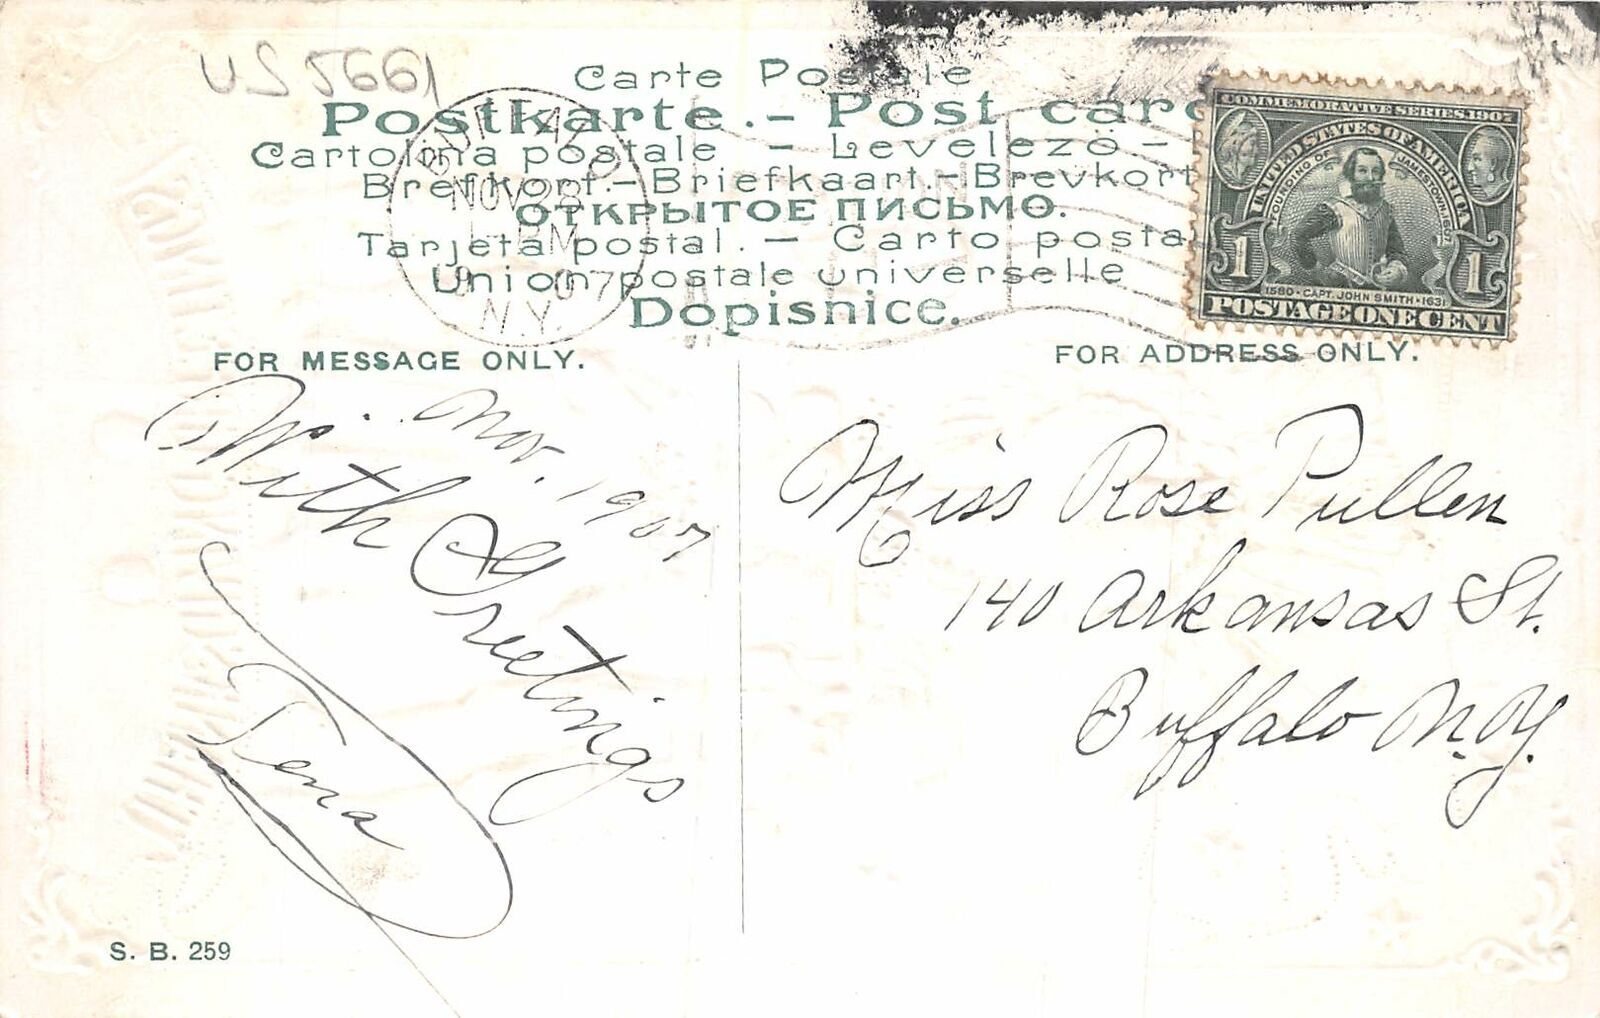 US 5661
Carte Postale
Postkarte.- Post card
Cartolina postale - Levelezö -
Brefkort.- Briefkaart.- Brevkort
ОТКРЫТОЕ ПИСЬМО.
Tarjeta postal. - Carto posta
Union postale universelle
Dopisnice.
BUFFALO
NOV 28
PM
07
N.Y.
COMMEMORATIVE SERIES 1907
UNITED STATES OF AMERICA
FOUNDING OF JAMESTOWN 1607
1 1
1580 · CAPT. JOHN SMITH · 1631
POSTAGE ONE CENT
FOR MESSAGE ONLY.
Nov. 1907
With Greetings
Tena
S. B. 259
FOR ADDRESS ONLY.
Miss Rose Pullen
140 Arkansas St.
Buffalo N.Y.